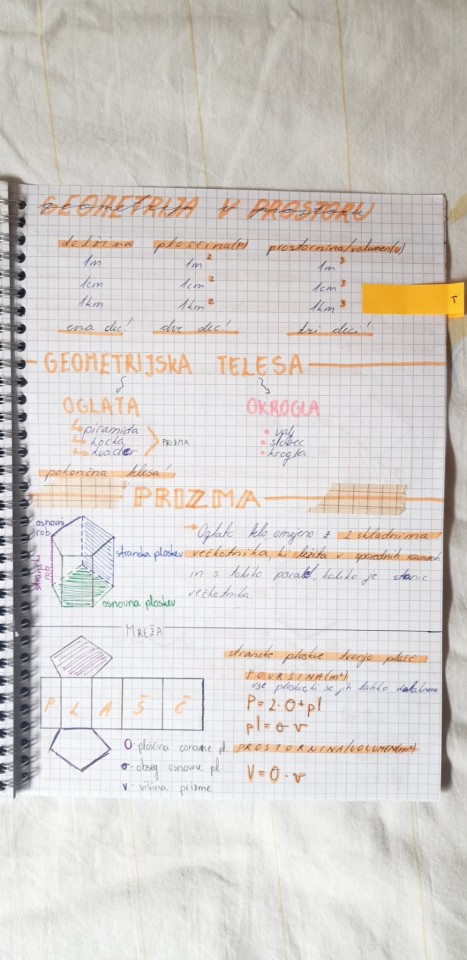 GEOMETRIJA V PROSTORU
dolžina ploščina(p) prostornina/volumen(v)
1m 1m² 1m³
1cm 1cm² 1cm³
1km 1km² 1km³
ena dec! dve dec! tri deci!
GEOMETRIJSKA TELESA
OGLATA OKROGLA
piramida
kocka PRIZMA
kvader
valj
stožec
krogla
pokončna telesa!
PRIZMA
osnovni rob
stranski rob
stranska ploskev
osnovna ploskev
Oglato telo omejeno z 2 skladnima
večkotnika, ki ležita v vzporednih ravninah
in s toliko paral., kolikor je stranic
večkotnika.
MREŽA
P L A Š Č
stranske ploskve tvorijo plašč
POVRŠINA(m²)
vse ploskve ki se jih lahko dotaknemo
P = 2·O + pl
pl = o·v
O - ploščina osnovne pl.
o - obseg osnovne pl.
v - višina prizme
PROSTORNINA/VOLUMEN(m³)
V = O · v